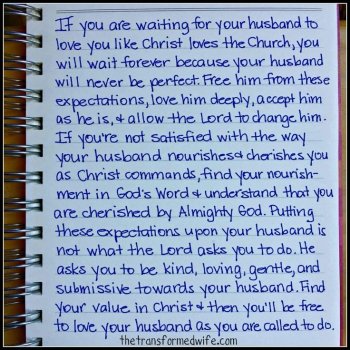 If you are waiting for your husband to
love you like Christ loves the Church, you
will wait forever because your husband
will never be perfect. Free him from these
expectations, love him deeply, accept him
as he is, & allow the Lord to change him.
If you're not satisfied with the way
your husband nourishes & cherishes you
as Christ commands, find your nourish-
ment in God's Word & understand that you
are cherished by Almighty God. Putting
these expectations upon your husband is
not what the Lord asks you to do. He
asks you to be kind, loving, gentle, and
submissive towards your husband. Find
your value in Christ & then you'll be free
to love your husband as you are called to do.
thetransformedwife.com